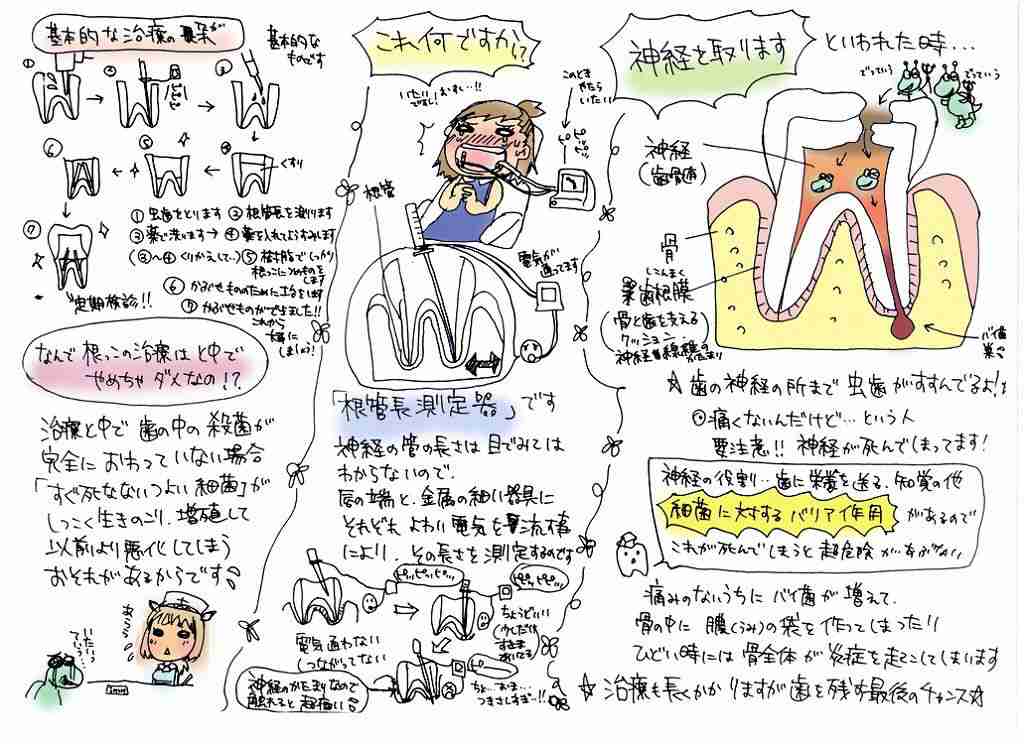 神経を取ります
といわれた時…
でっていう
でっていう
神経
(歯髄)
骨
しこんまく
歯根膜
(骨と歯を支える
クッション
神経・線維の
かたまり)
バイ菌
巣
☆歯の神経の所まで虫歯がすすんでるよ!!
◎痛くないんだけど…という人
要注意!! 神経が死んでしまってます!
神経の役割…歯に栄養を送る、知覚の他
細菌に対するバリア作用
があるので
これが死んでしまうと超危険
痛みのないうちにバイ菌が増えて、
骨の中に膿(うみ)の袋を作ってしまったり
ひどい時には骨全体が炎症を起こしてしまいます
☆治療も長くかかりますが歯を残す最後のチャンス☆
これ何ですか!?
このとき
やたら
いたい
ピピッ
ピッ
根管
電気が
通ってます
「根管長測定器」です
神経の管の長さは目でみては
わからないので、
唇の端と、金属の細い器具に
それぞれよわい電気を流す事
により、その長さを測定するのです
ピッピッピッ…
ピピッピピッ…
電気通わない
(つながってない
ちょうどいい
(少しだけ
すきま
あいてる
神経のかたまりなので
触れると超痛い
ちょ…おま…
つきさしすぎ…!!
基本的な治療の
基本的な
ものです
①
②
③
④
くすり
⑤
⑥
⑦
①虫歯をとります ②根管長を測ります
③薬で洗います→④薬を入れてようすみします
(③~④くりかえして…) ⑤樹脂でしっかり
根っこにつめものを
します
⑥かぶせもののために土台をします
⑦かぶせものができました!!
これから
大事に
しましょ!
定期検診!!
なんで根っこの治療はと中で
やめちゃダメなの!?
治療と中で歯の中の殺菌が
完全におわっていない場合
「すぐ死なないつよい細菌」が
しつこく生きのこり、増殖して
以前より悪化してしまう
おそれがあるからです
あららら
でっていう